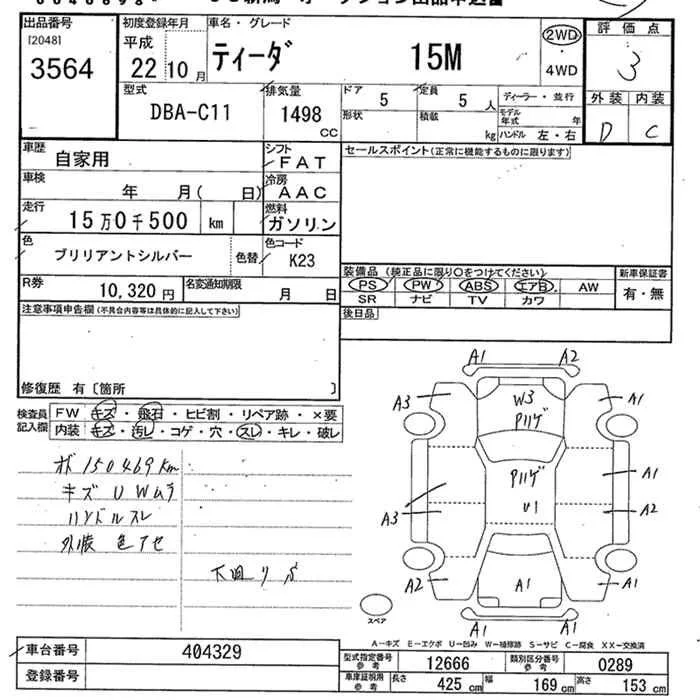 出品番号 初度登録年月 車名・グレード 2WD 評価点
[2048] 平成 ティーダ 15M ・ 3
3564 22 10月 4WD
型式 排気量 ドア 5 定員 5人 ディーラー・並行 外装 内装
DBA-C11 1498 cc 形状 積載 kg モデル年式 年 D C
ハンドル 左・右
車歴 自家用 シフト FAT セールスポイント(正常に機能するものに限ります)
車検 年 月( 日) 冷房 AAC
走行 15万0千500 km 燃料 ガソリン
色 ブリリアントシルバー 色替 色コード K23
装備品(純正品に限り○をつけてください) 新車保証書
R券 10,320円 名変通知期限 月 日 PS PW ABS エアB AW 有・無
SR ナビ TV カワ
注意事項申告欄(不具合内容等は具体的に記入して下さい) 後日品
修復歴 有〔箇所 〕
検査員 FW キズ・飛石・ヒビ割・リペア跡・×要
記入欄 内装 キズ・汚レ・コゲ・穴・スレ・キレ・破レ
150469km
キズ U Wムラ
ハンドルスレ
外装 色アセ
下回リ
A1 A2
A3 W3 A1
Pハゲ
Pハゲ A1
A3 U1 A2
A2 A1 A1
A1 A1
スペア
A-キズ E-エクボ U-凹み W-補修跡 S-サビ C-腐食 XX-交換済
車台番号 404329 型式指定番号 参考 12666 類別区分番号 参考 0289
登録番号 車庫証明用 参考 長さ 425cm 幅 169cm 高さ 153cm